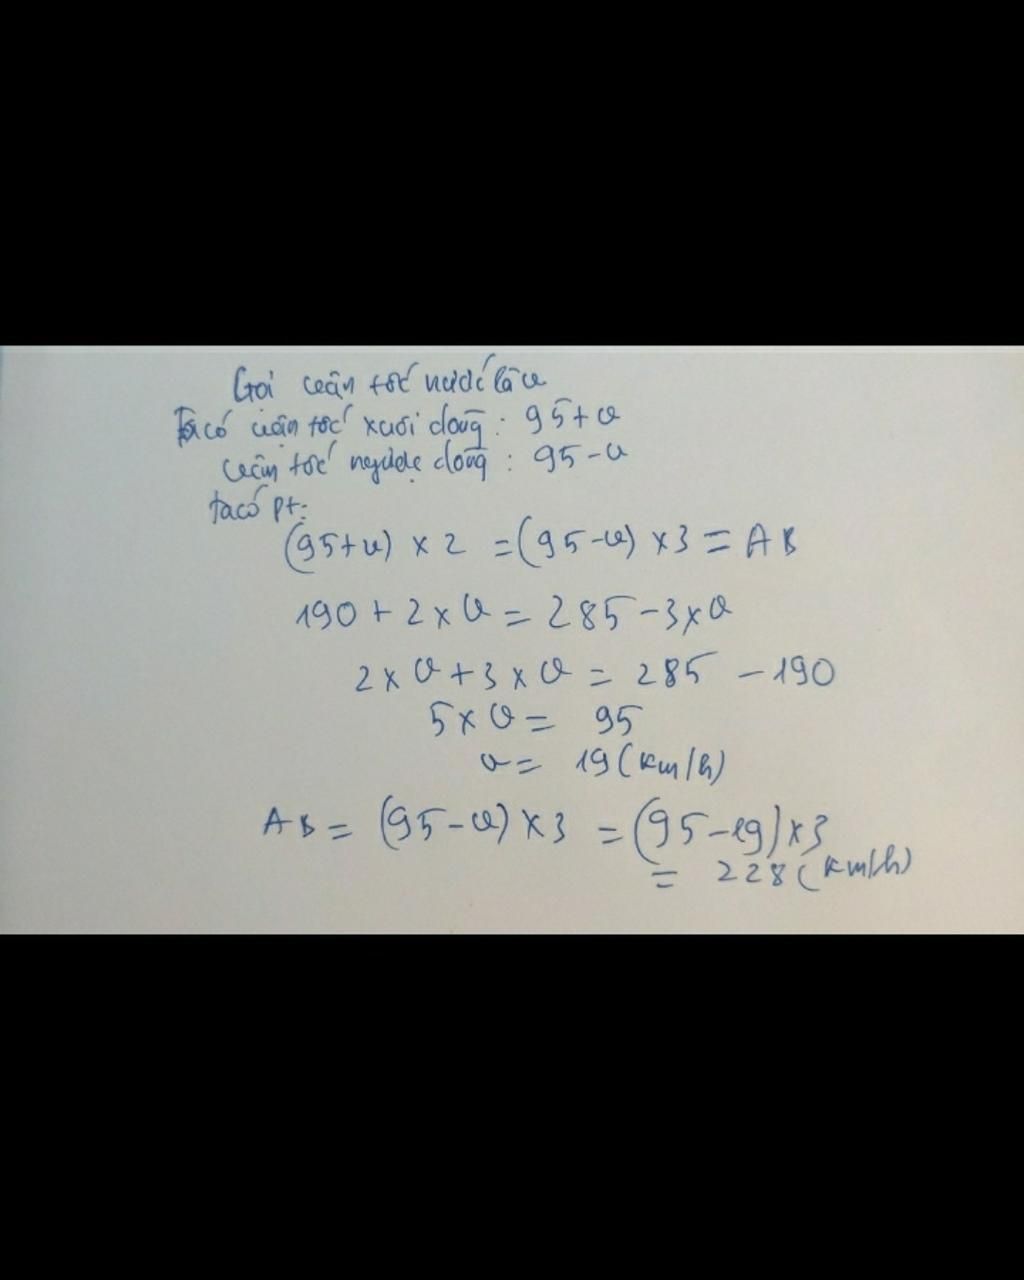 Gọi vận tốc nước là v
Ta có vận tốc xuôi dòng : 95+v
vận tốc ngược dòng : 95-v
ta có pt:
(95+v) x 2 = (95-v) x3 = AB
190 + 2 x v = 285 - 3 x v
2 x v + 3 x v = 285 - 190
5 x v = 95
v = 19 (km/h)
AB = (95-v) x 3 = (95-19) x3
= 228 (km/h)